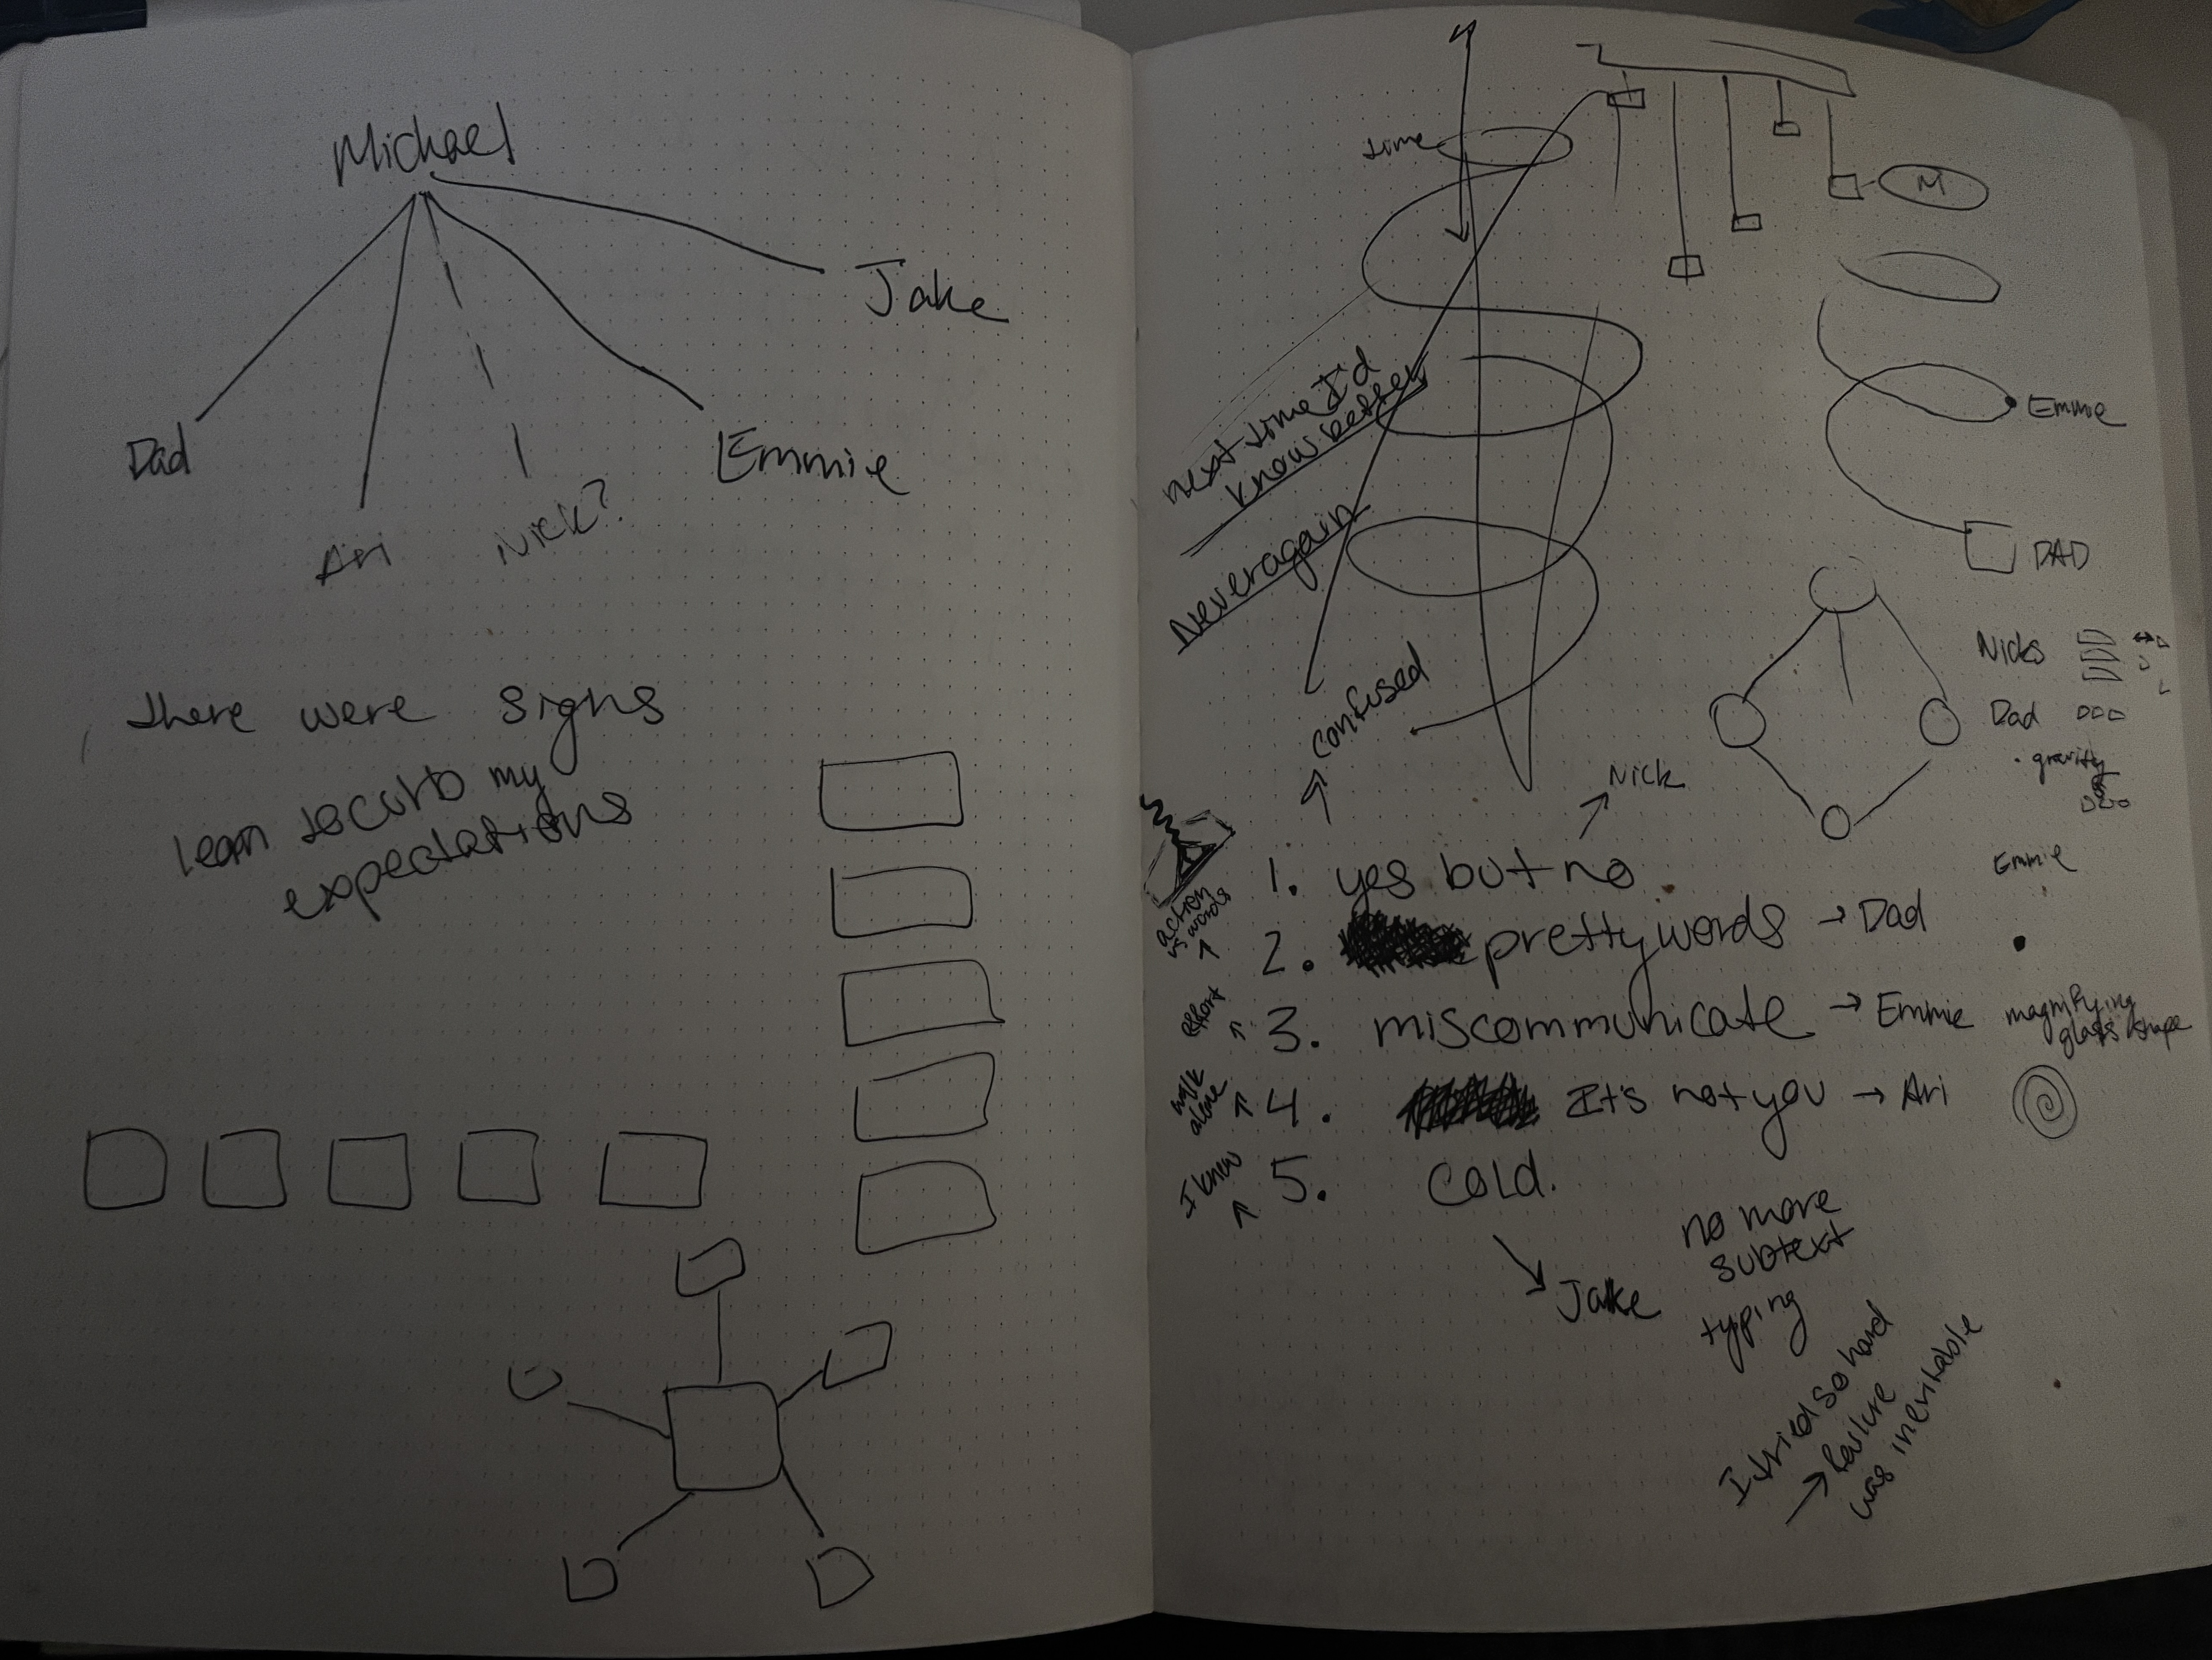 Michael
Jake
Dad
Emmie
Ari
Nick?
there were signs
my
expectations
time
M
next time I'd
know better
Never again
Emmie
DAD
confused
Nicks
Dad
gravity
Nick
Emmie
1. yes but no
action
vs words
2. pretty words → Dad
effort
3. miscommunicate → Emmie
magnifying
glass shape
walk
alone
4. It's not you → Ari
I knew
5. cold.
Jake
no more
subtext
typing
I tried so hard
→ failure
was inevitable